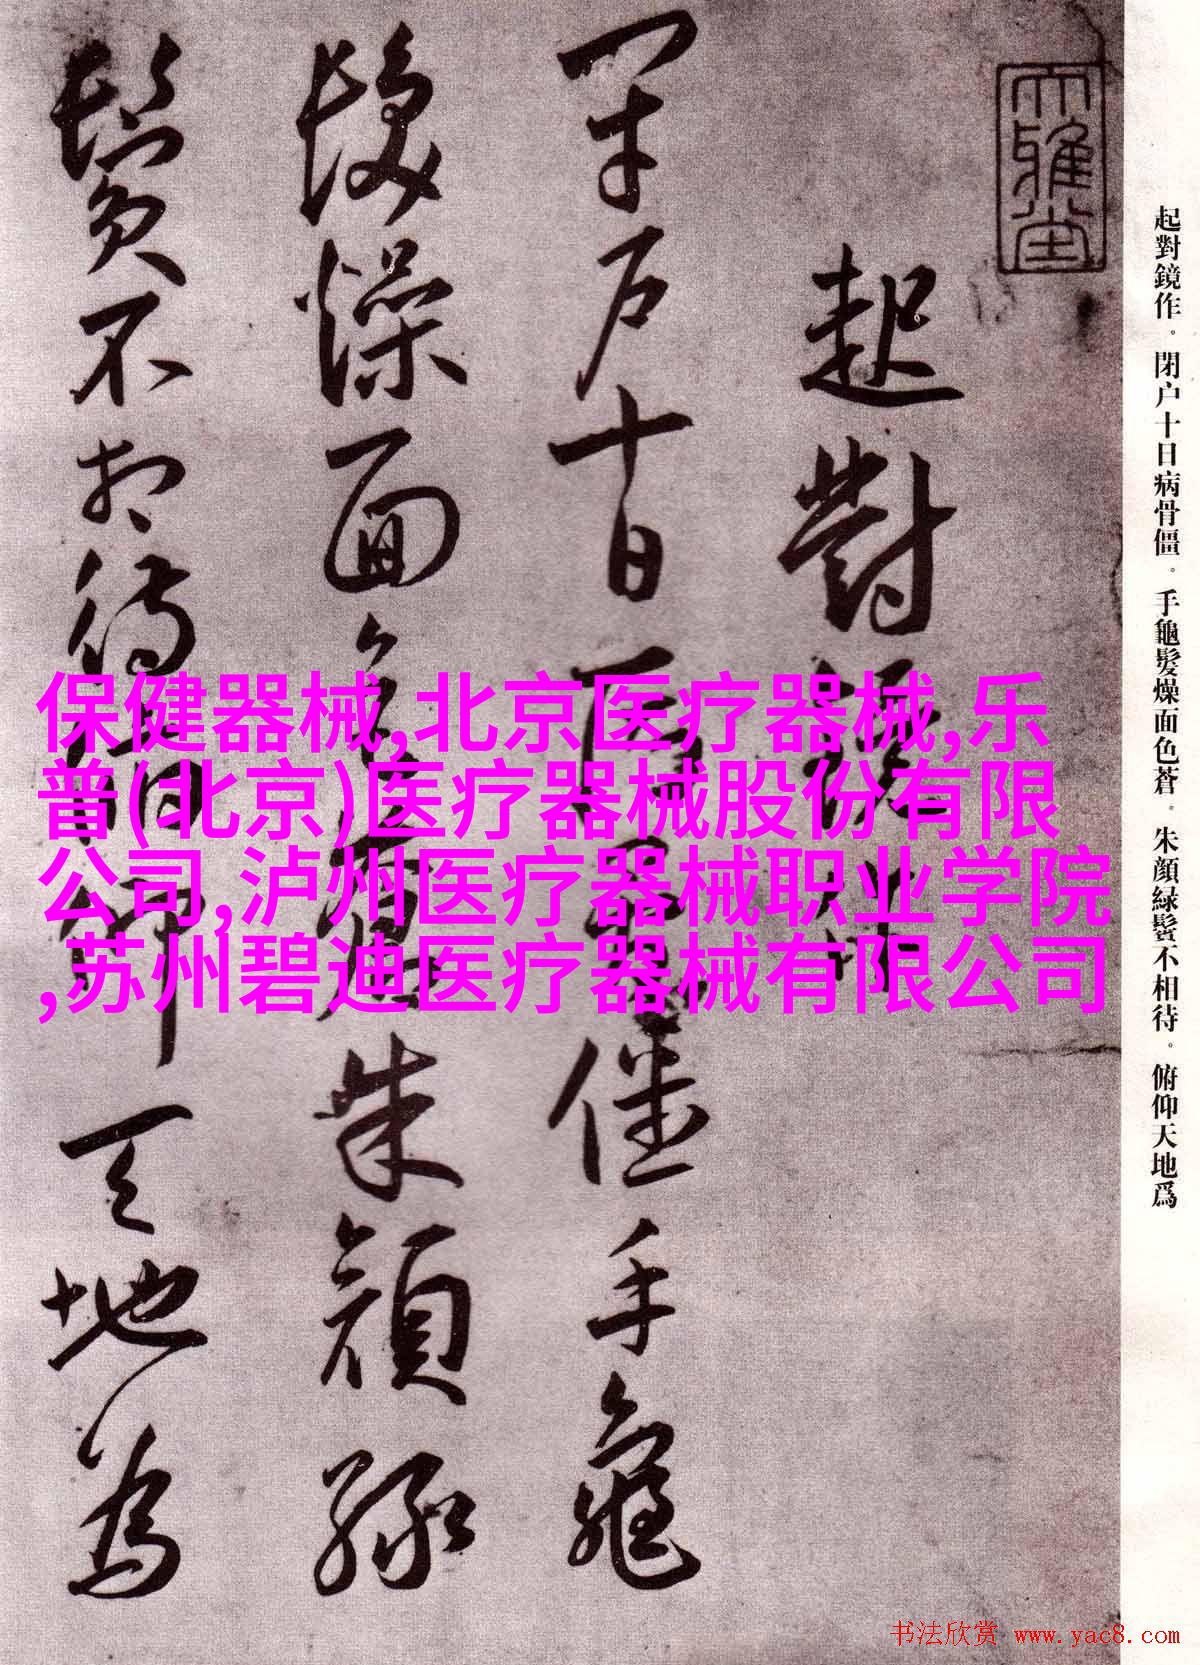 大雅堂
起對鏡作。閉户十日病骨僵。手龜髮燥面色蒼。朱顔緑鬢不相待。俯仰天地爲
起對鏡作
閉户十日病骨僵手龜
髮燥面色蒼朱顔緑
鬢不相待俯仰天地為
保健器械,北京医疗器械,乐
普(北京)医疗器械股份有限
公司,泸州医疗器械职业学院
,苏州碧迪医疗器械有限公司
书法欣赏 www.yac8.com